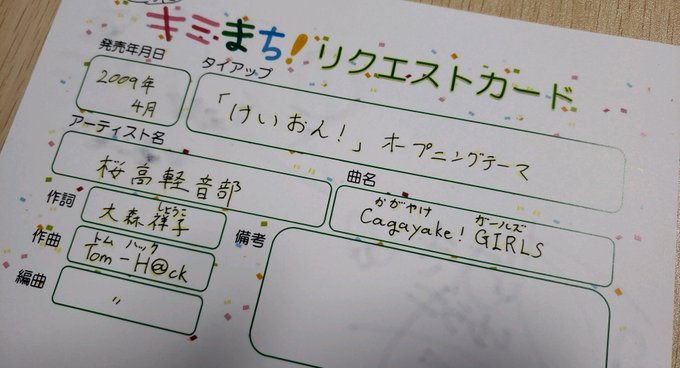 キミまち!リクエストカード
発売年月日
2009年
4月
タイアップ
「けいおん!」オープニングテーマ
アーティスト名
桜高軽音部
曲名
かがやけ ガールズ
Cagayake! GIRLS
作詞
しょうこ
大森祥子
作曲
トム ハック
Tom-H@ck
編曲
〃
備考